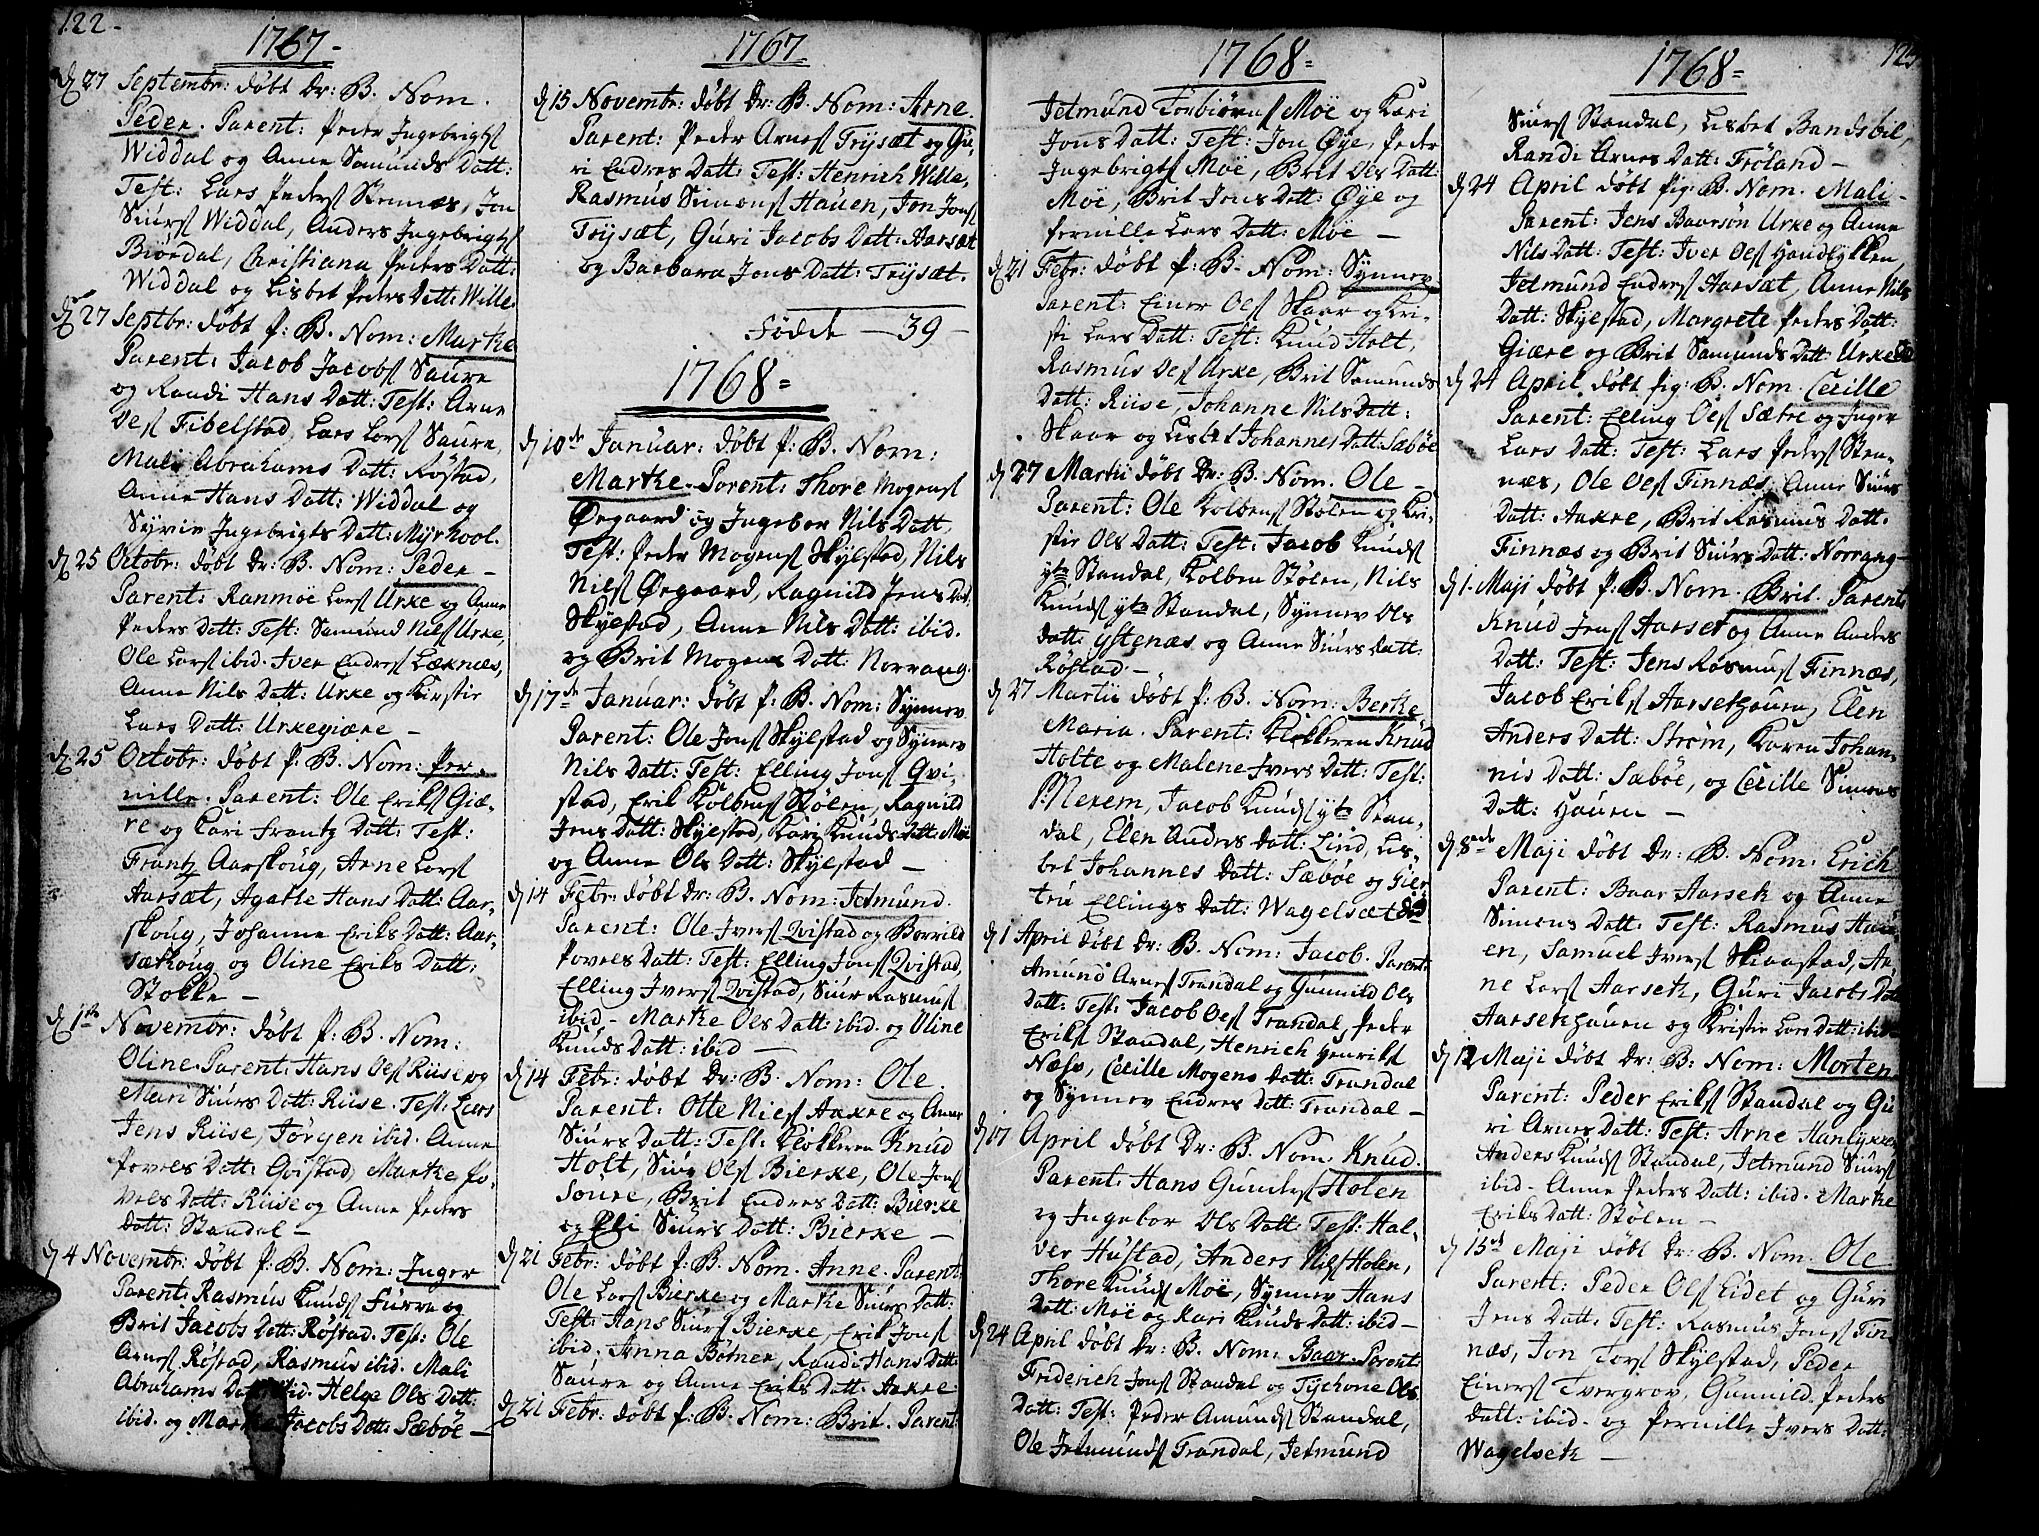 122-
1767-
d 27 Septembr: döbt Dr: B. Nom.
Peder. Parent: Peder Ingebrigts
Widdal og Anne Samunds Datt:
Test: Lars Peders Stennæs, Jon
Siurs Widdal, Anders Ingebrigts
Biørdal, Christiana Peders Datt:
Widdal og Lisbet Peders Datt: Wille
d 27 Septbr: döbt P: B. Nom: Marthe
Parent: Jacob Jacobs Saure
og Randi Hans Datt: Test: Arne
Oes Fibelstad, Lars Lars Saure,
Mali Abrahams Datt: Røstad,
Anne Hans Datt: Widdal og
Syvir Ingebrigts Datt: Myrhool.
d 25 Octobr: döbt Dr: B. Nom: Peder -
Parent: Ranmøe Lars Urke og Anne
Peders Datt: Test: Samund Nils Urke,
Ole Lars ibid. Iver Endres Leknæs,
Anne Nils Datt: Urke og Kirstie
Lars Datt: Urkegiære -
d 25 Octobr: döbt P: B. Nom: Per-
nille. Parent: Ole Eriks Giæ-
re og Kari Frantz Datt: Test:
Frantz Aarskoug, Arne Lars
Aarsæt, Agathe Hans Datt: Aar-
skoug, Johanne Eriks Datt: Aar-
sætkoug og Oline Eriks Datt:
Stokke -
d 1te Novembr: döbt P: B. Nom:
Oline. Parent: Hans Oes Riise og
Mari Siurs Datt: Riise. Test: Lars
Jens Riise, Jörgen ibid. Anne
Povels Datt: Qvistad, Marthe Po-
vels Datt: Riise og Anne Peders
Datt: Standal -
d 4 Novembr: döbt P: B. Nom: Inger
Parent: Rasmus Knuds Furre og
Brit Jacobs Datt: Røstad. Test: Ole
Arnes Røstad, Rasmus ibid. Mali
Abrahams Datt: ibid. Helge Ols Datt:
ibid. og Marthe Jacobs Datt: Sæbøe -
1767
d 15 Novembr: döbt Dr: B. Nom: Arne.
Parent: Peder Arnes Trysæt og Gu-
ri Endres Datt: Test: Henrich Wille,
Rasmus Simens Hauen, Jon Jons
Trysæt, Guri Jacobs Datt: Aarsæt
og Barbara Jons Datt: Trysæt.
Födde - 39 -
1768=
d 10de Januar: döbt P: B. Nom:
Marthe. Parent: Thore Mogens
Øregaard og Ingebor Nils Datt
Test: Peder Mogens Skylstad, Nils
Nils Øregaard, Ragnild Jens Datt,
Skylstad, Anne Nils Datt: ibid.
og Brit Mogens Datt: Norrang.
d 17de Januar: döbt P: B. Nom: Synnev
Parent: Ole Jons Skylstad og Synnev
Nils Datt: Test: Elling Jons Qvi-
stad, Erik Kolbens Stølen, Ragnild
Jens Datt: Skylstad, Kari Knuds Datt: Møe
og Anne Ols Datt: Skylstad -
d 14 Febr: döbt Dr: B. Nom: Jetmund.
Parent: Ole Ivers Qvistad og Borrild
Povels Datt: Test: Elling Jons Qvistad,
Elling Ivers Qvistad, Siur Rasmus
ibid - Marthe Ols Datt: ibid. og Oline
Knuds Datt: ibid -
d 14 Febr: döbt Dr: B. Nom: Ole.
Parent: Otte Niels Aakre og Anne
Siurs Datt: Test: Klokkeren Knud
Holt, Siur Ols Bierke, Ole Jons
Soure, Brit Endres Datt: Bierke
og Eli Siurs Datt: Bierke -
d 21 Febr: döbt P: B. Nom. Anne. Parent:
Ole Lars Bierke og Marthe Siurs Datt:
Test: Hans Siurs Bierke, Erik Jons
ibid. Anna Bötner, Randi Hans Datt:
Saure og Anne Eriks Datt: Aakre
d 21 Febr: döbt P: B. Nom: Brit. Parent:
1768=
Jetmund Torbiörns Møe og Kari
Jons Datt: Test: Jon Øye, Peder
Ingebrigts Møe, Brit Ols Datt:
Møe, Brit Jons Datt: Øye og
Pernille Lars Datt: Møe -
d 21 Febr: döbt P: B. Nom: Synnev
Parent: Einer Oes Skaar og Kri-
sti Lars Datt: Test: Knud Holt,
Rasmus Oes Urke, Brit Samunds
Datt: Riise, Johanne Nils Datt:
Skaar og Lisbet Johannes Datt: Sæbøe
d 27 Martii döbt Dr: B. Nom. Ole -
Parent: Ole Kolbens Stølen og Kri-
stie Ols Datt: Test: Jacob Knuds
yte Standal, Kolben Stølen, Nils
Knuds yte Standal, Synnev Ols
Datt: ystenæs og Anne Siurs Datt:
Røstad -
d 27 Martii döbt P: B. Nom: Berthe
Maria. Parent: Klokkeren Knud
Holte og Malene Ivers Datt: Test:
P: Nerem, Jacob Knuds yte Stan-
dal, Elen Anders Datt: Lind, Lis-
bet Johannes Datt: Sæbøe og Gier-
tru Ellings Datt: Wagelsæt
d 1 April döbt Dr: B. Nom: Jacob. Parent:
Amund Arnes Trandal og Gunnild Ols
Datt: Test: Jacob Oes Trandal, Peder
Eriks Standal, Henrich Henriks
Næse, Cecille Mogens Datt: Trandal
og Synnev Endres Datt: Trandal -
d 17 April döbt Dr: B. Nom. Knud.
Parent: Hans Gunders Holen
og Ingebor Ols Datt: Test: Hal-
ver Hustad, Anders Nils Holen,
Thore Knuds Møe, Synnev Hans
Datt: Møe og Kari Knuds Datt: ibid -
d 24 April döbt Dr: B. Nom: Baar. Parent:
Friderich Jons Standal og Tychone Ols
Datt: Test: Peder Amunds Standal,
Ole Jetmunds Trandal, Jetmund
1768=
Siurs Standal, Lisbet Bandsbil,
Randi Arnes Datt: Fröland -
d 24 April döbt Pig: B. Nom. Mali -
Parent: Jens Baarsön Urke og Anne
Nils Datt: Test: Iver Oes Handlykken,
Jetmund Endres Aarsæt, Anne Nils
Datt: Skylstad, Margrete Peders Datt:
Giære og Brit Samunds Datt: Urke
d 24 April döbt Pig: B. Nom. Cecille
Parent: Elling Oes Sætre og Inger
Lars Datt: Test: Lars Peders Sten-
næs, Ole Oes Finnæs, Anne Siurs
Datt: Aakre, Brit Rasmus Datt.
Finnæs og Brit Siurs Datt: Norrang -
d 1. Maji döbt P: B. Nom. Brit. Parent:
Knud Jens Aarset og Anne Anders
Datt: Test: Jens Rasmus Finnæs,
Jacob Eriks Aarsethauen, Elen
Anders Datt: Strøm, Karen Johan-
nis Datt: Sæbøe, og Cecille Simens
Datt: Hauen -
d 8nde Maji döbt Dr: B. Nom: Erich
Parent: Baar Aarseth og Anne
Simens Datt: Test: Rasmus Hau-
en, Samuel Ivers Skaastad, Ar-
ne Lars Aarseth, Guri Jacobs Datt
Aarsethhauen og Kristie Lars Datt: ibid -
d 12 Maji döbt Dr: B. Nom: Morten
Parent: Peder Eriks Standal og Gu-
ri Arnes Datt: Test: Arne Hanlykke,
Anders Knuds Standal, Jetmund Siurs
ibid - Anne Peders Datt: ibid. Marthe
Eriks Datt: Stølen -
d 15de Maji döbt Dr: B. Nom. Ole
Parent: Peder Oes Eidet og Guri
Jens Datt: Test: Rasmus Jons Fin-
næs, Jon Tors Skylstad, Peder
Einers Tvergrov, Gunnild Peders
Datt: ibid - og Pernille Ivers Datt:
Wagelseth -